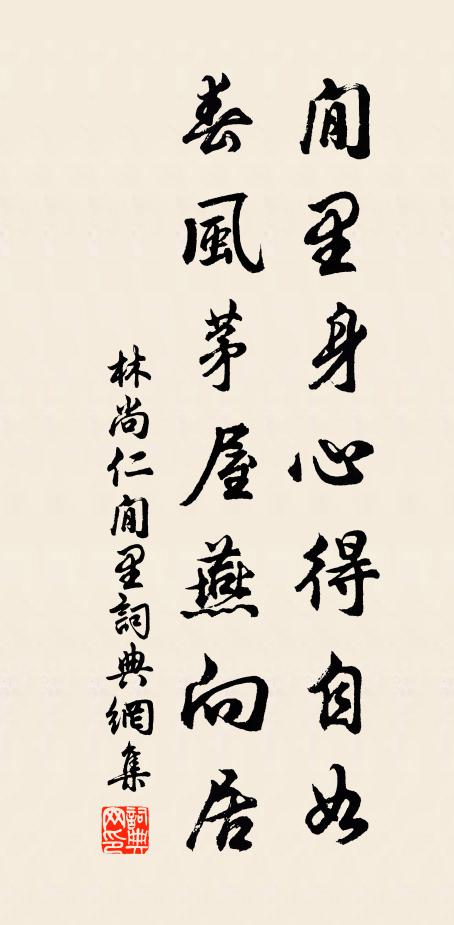 閒里身心得自如
春風茅屋燕向居
林尚仁閒里詞典網集
詞典网印